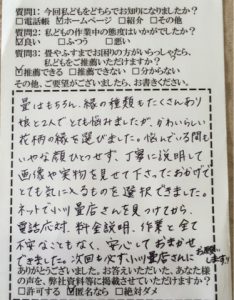 質問1: 今回私どもをどちらでお知りになりましたか?
□電話帳 ☑ホームページ □紹介 □その他
質問2: 私どもの作業中の態度はいかがでしたか?
☑良い □ふつう □悪い
質問3: 畳やふすまでお困りの方がいらっしゃたら、
私どもをご推薦いただけますか?
☑推薦できる □推薦できない □分からない
その他、ご要望がございましたら、お書きください。
畳はもちろん、縁の種類もたくさんあり
娘と2人でとても悩みましたが、かわいらしい
花柄の縁を選びました。悩んでいる間も
いやな顔ひとつせず、丁寧に説明して
画像や実物を見せて下さったおかげで
とても気に入るものを選択できました。
ネットで小川畳店さんを見つけてから、
電話応対、料金説明、作業と全て
不安なこともなく、安心しておまかせ
できました。次回も必ず小川畳店さんに
お願いします!!
ありがとうございました。お答えいただいた、あなた様
の声を、弊社資料等に掲載させていただけますか?
□許可する ☑匿名なら □絶対ダメ